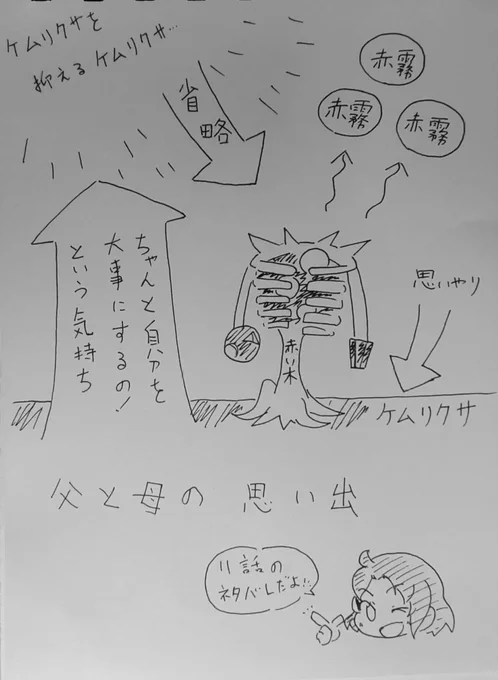 ケムリクサを
抑えるケムリクサ…
省略
赤霧
赤霧
赤霧
ちゃんと自分を
大事にするの！
という気持ち
赤い木
思いやり
ケムリクサ
父と母の思い出
11話の
ネタバレだよ!!